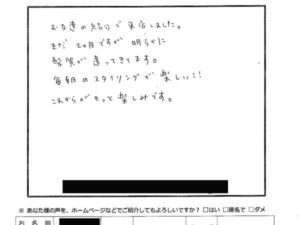 友達の紹介で来店しました。
まだ2ヶ月ですが明らかに
髪質が違ってきてます。
毎朝のスタイリングが楽しい!!
これからがもっと楽しみです。
※ あなた様の声を、ホームページなどでご紹介してもよろしいですか？ □はい □匿名で □ダメ
お名前